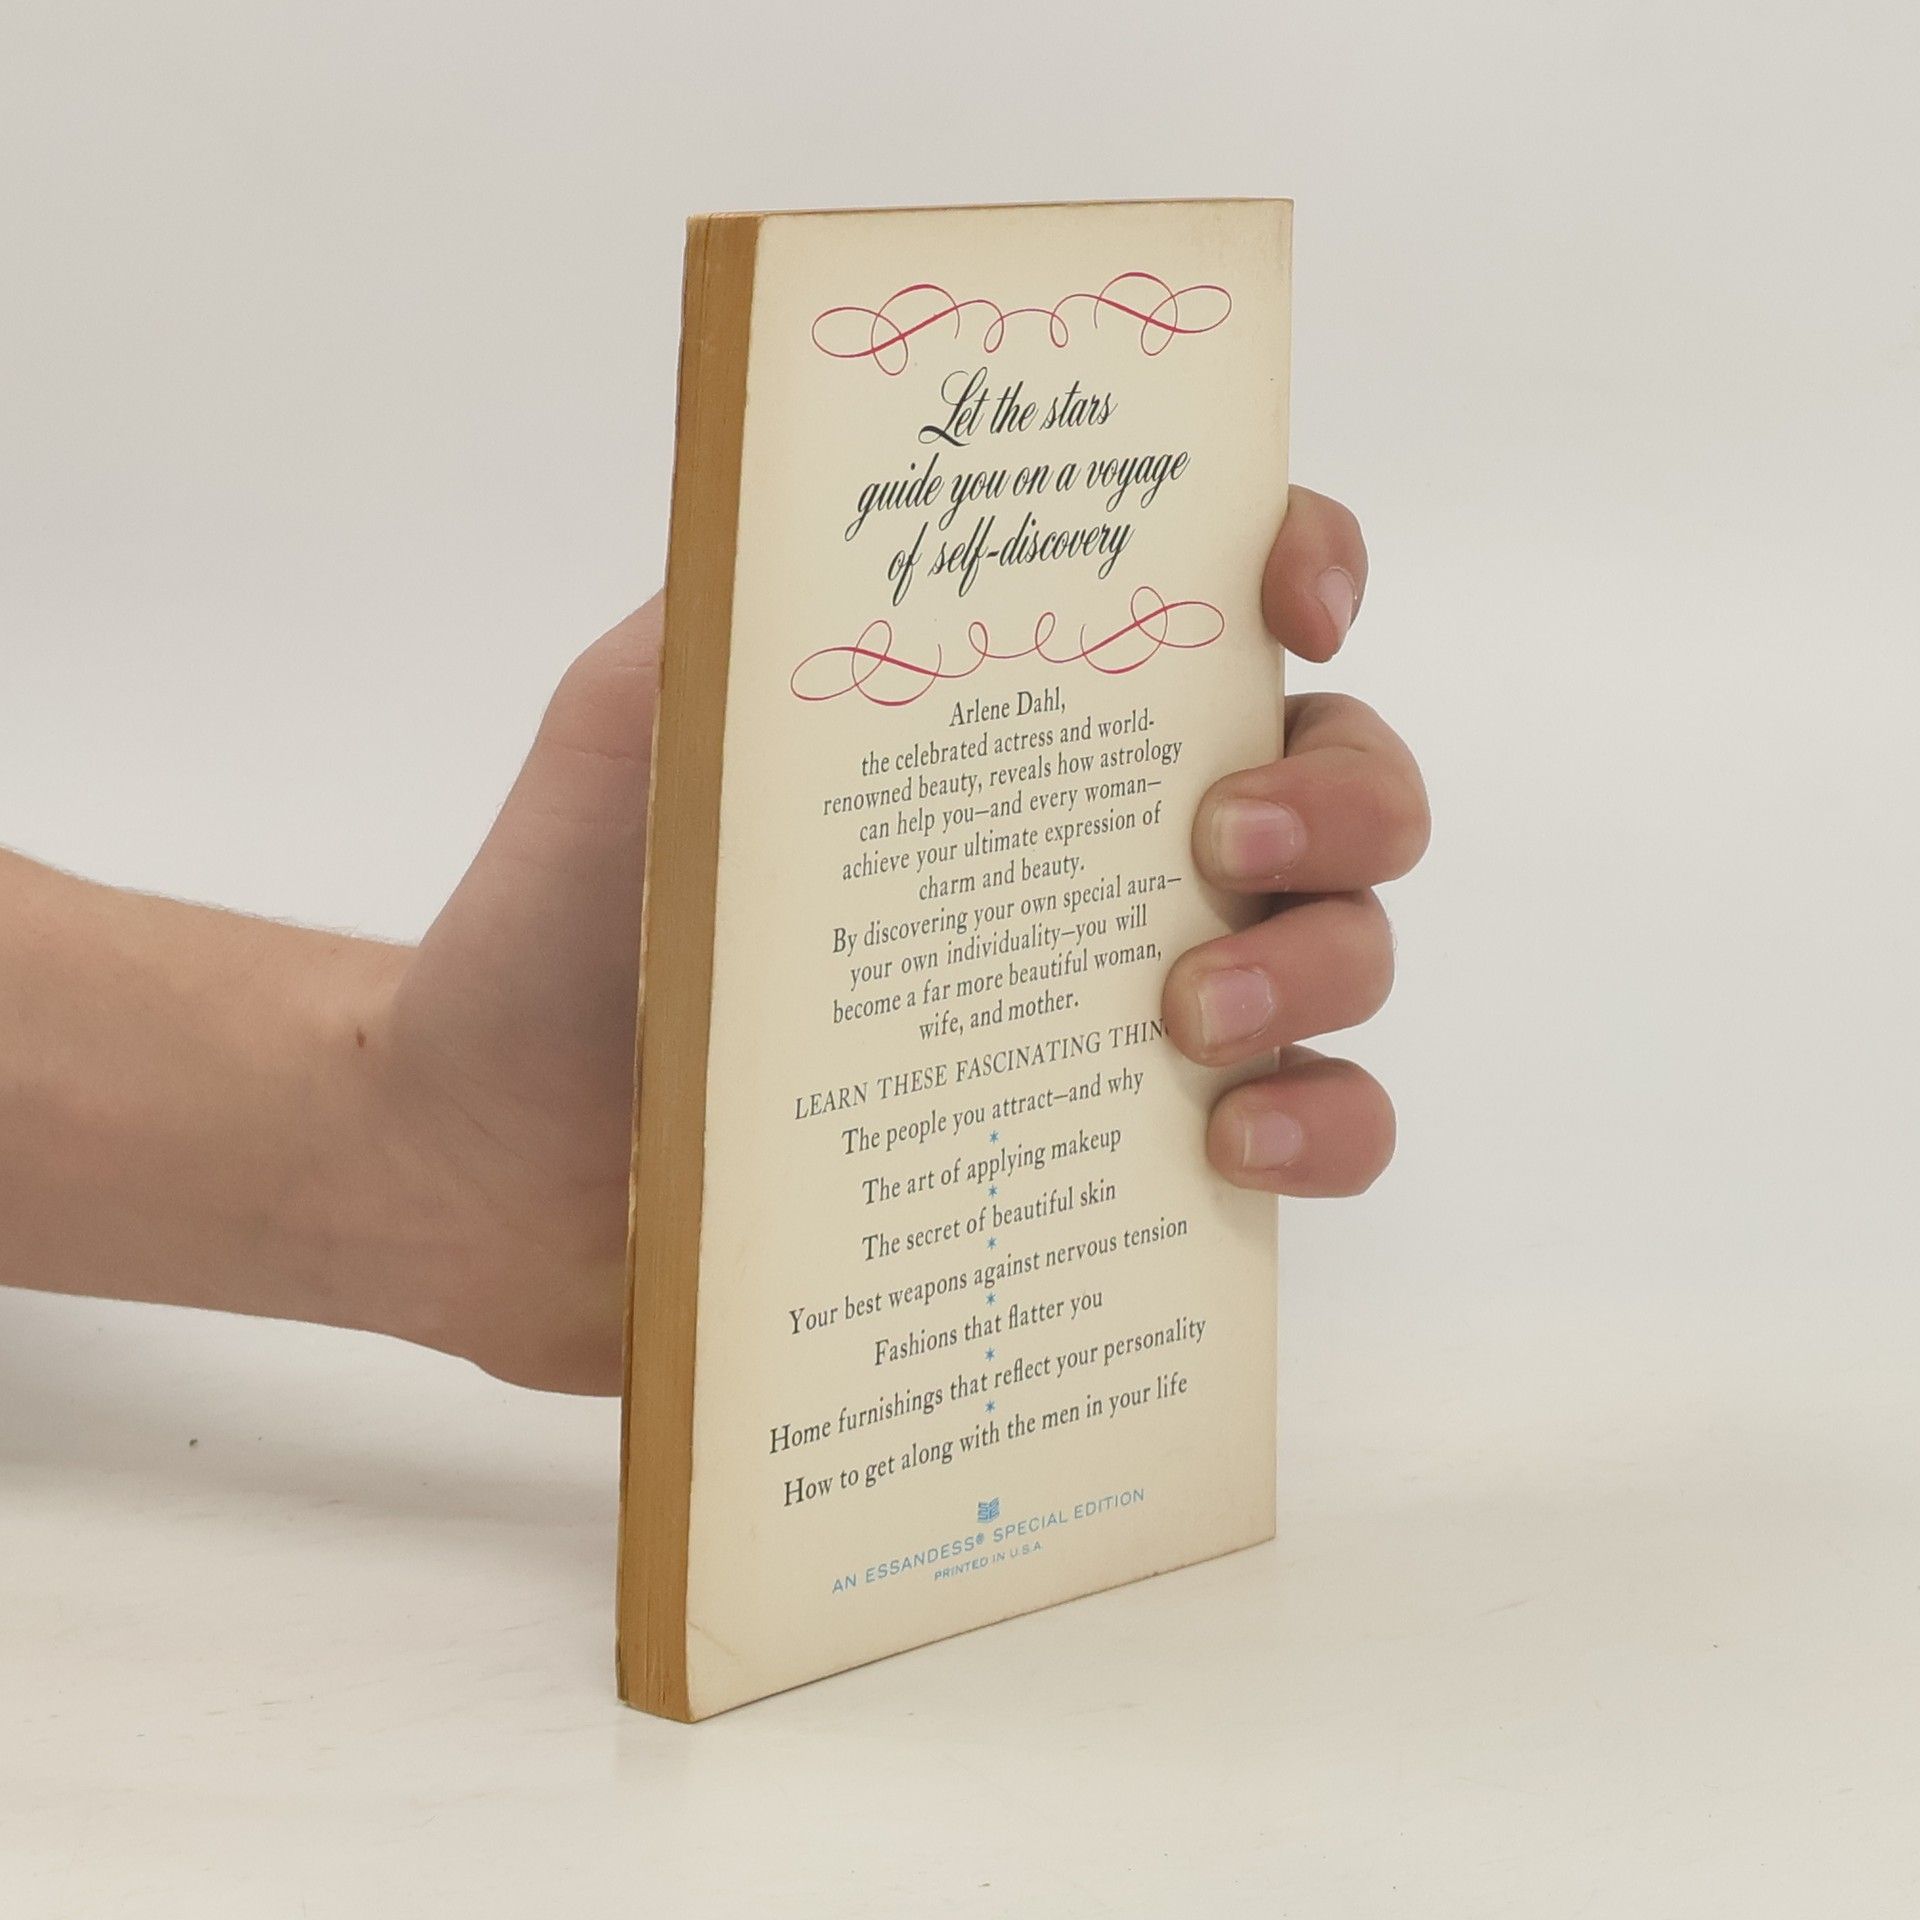 Let the stars
guide you on a voyage
of self-discovery
Arlene Dahl,
the celebrated actress and world-
renowned beauty, reveals how astrology
can help you—and every woman—
achieve your ultimate expression of
charm and beauty.
By discovering your own special aura—
your own individuality—you will
become a far more beautiful woman,
wife, and mother.
LEARN THESE FASCINATING
The people you attract—and why
The art of applying makeup
The secret of beautiful skin
Your best weapons against nervous tension
Fashions that flatter you
Home furnishings that reflect your personality
How to get along with the men in your life
AN ESSANDESS® SPECIAL EDITION
PRINTED IN U.S.A.